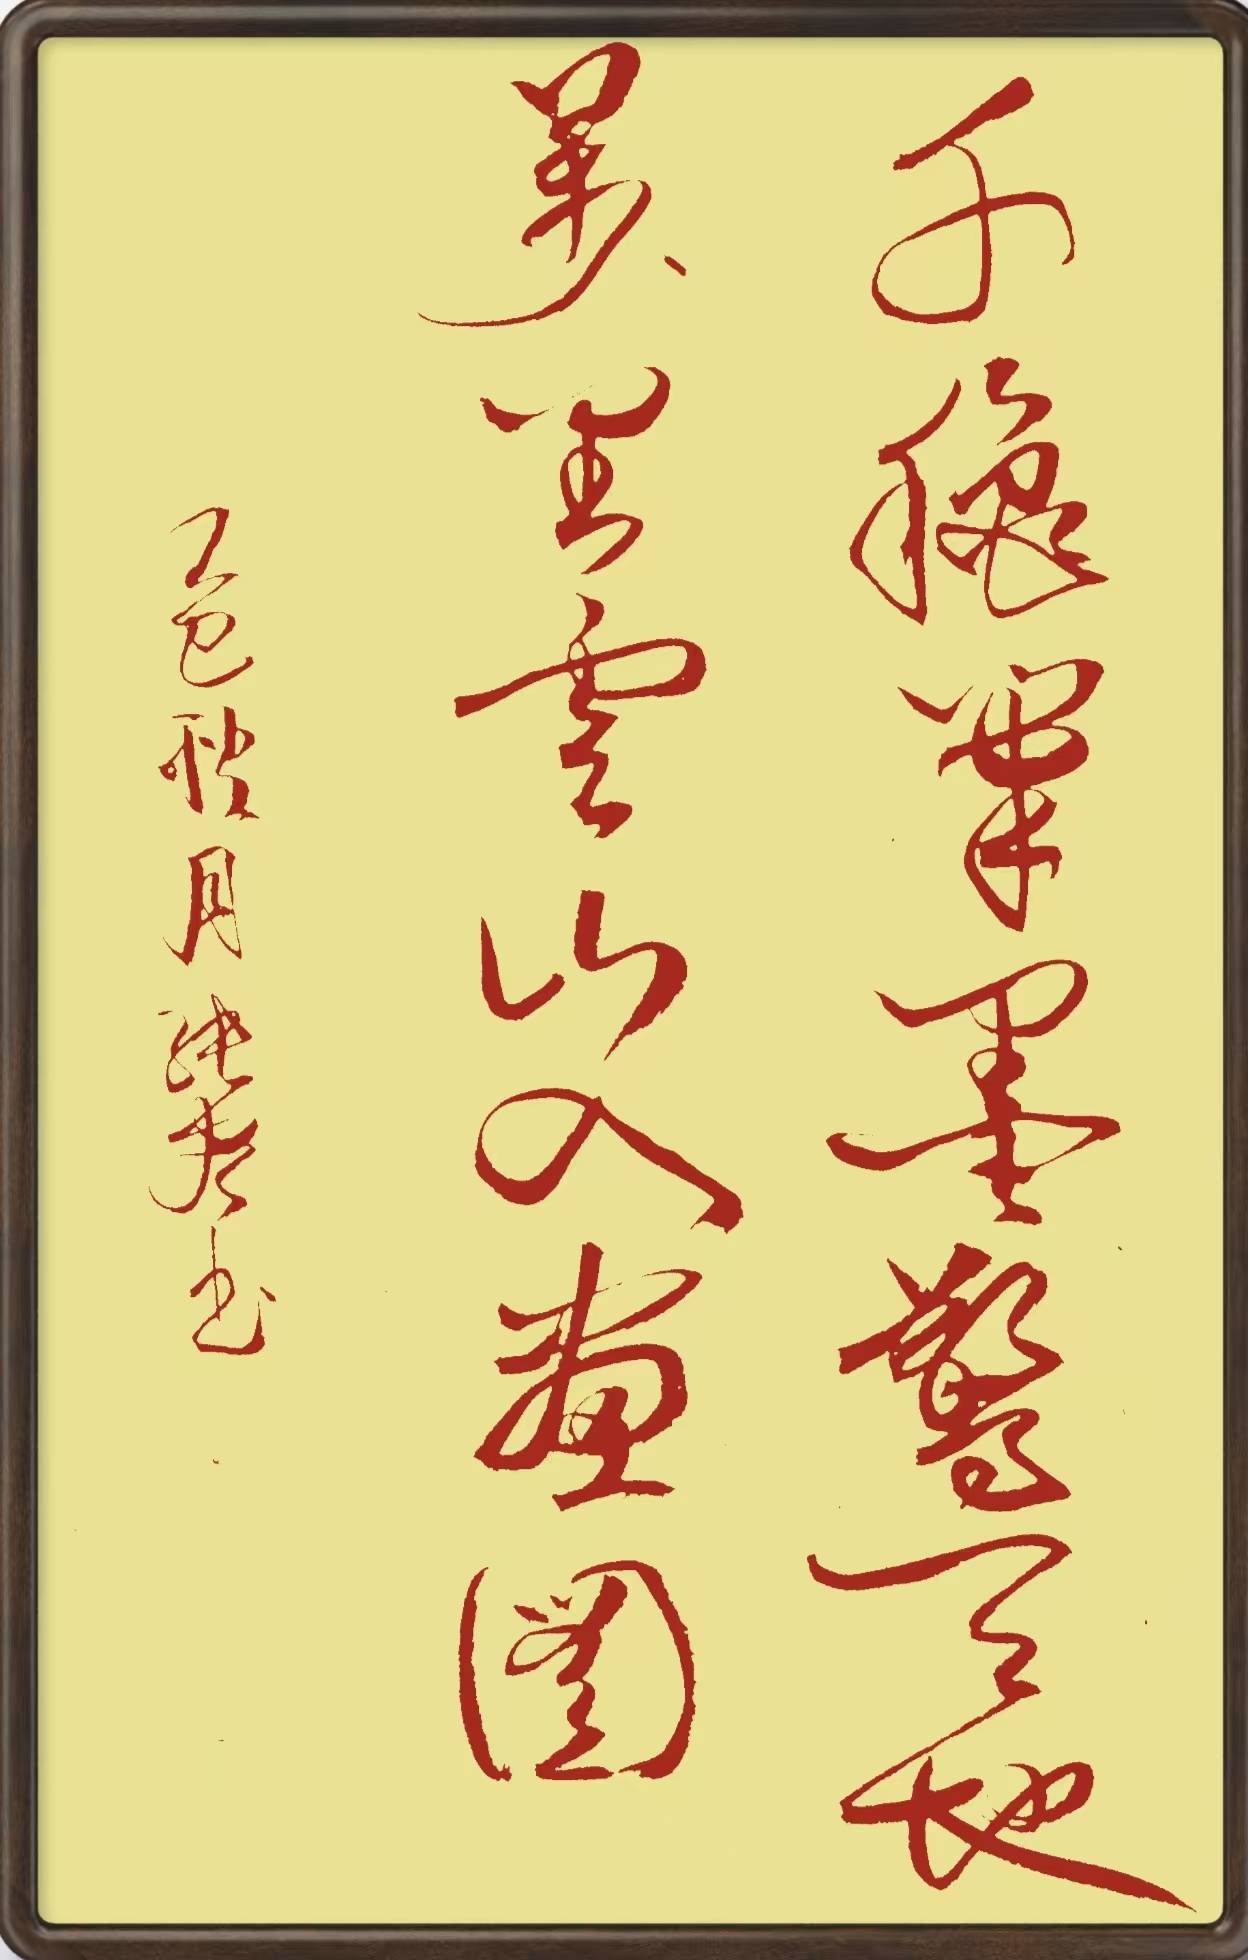 千秋笔墨惊天地
万里云山入画图
乙巳秋月
书